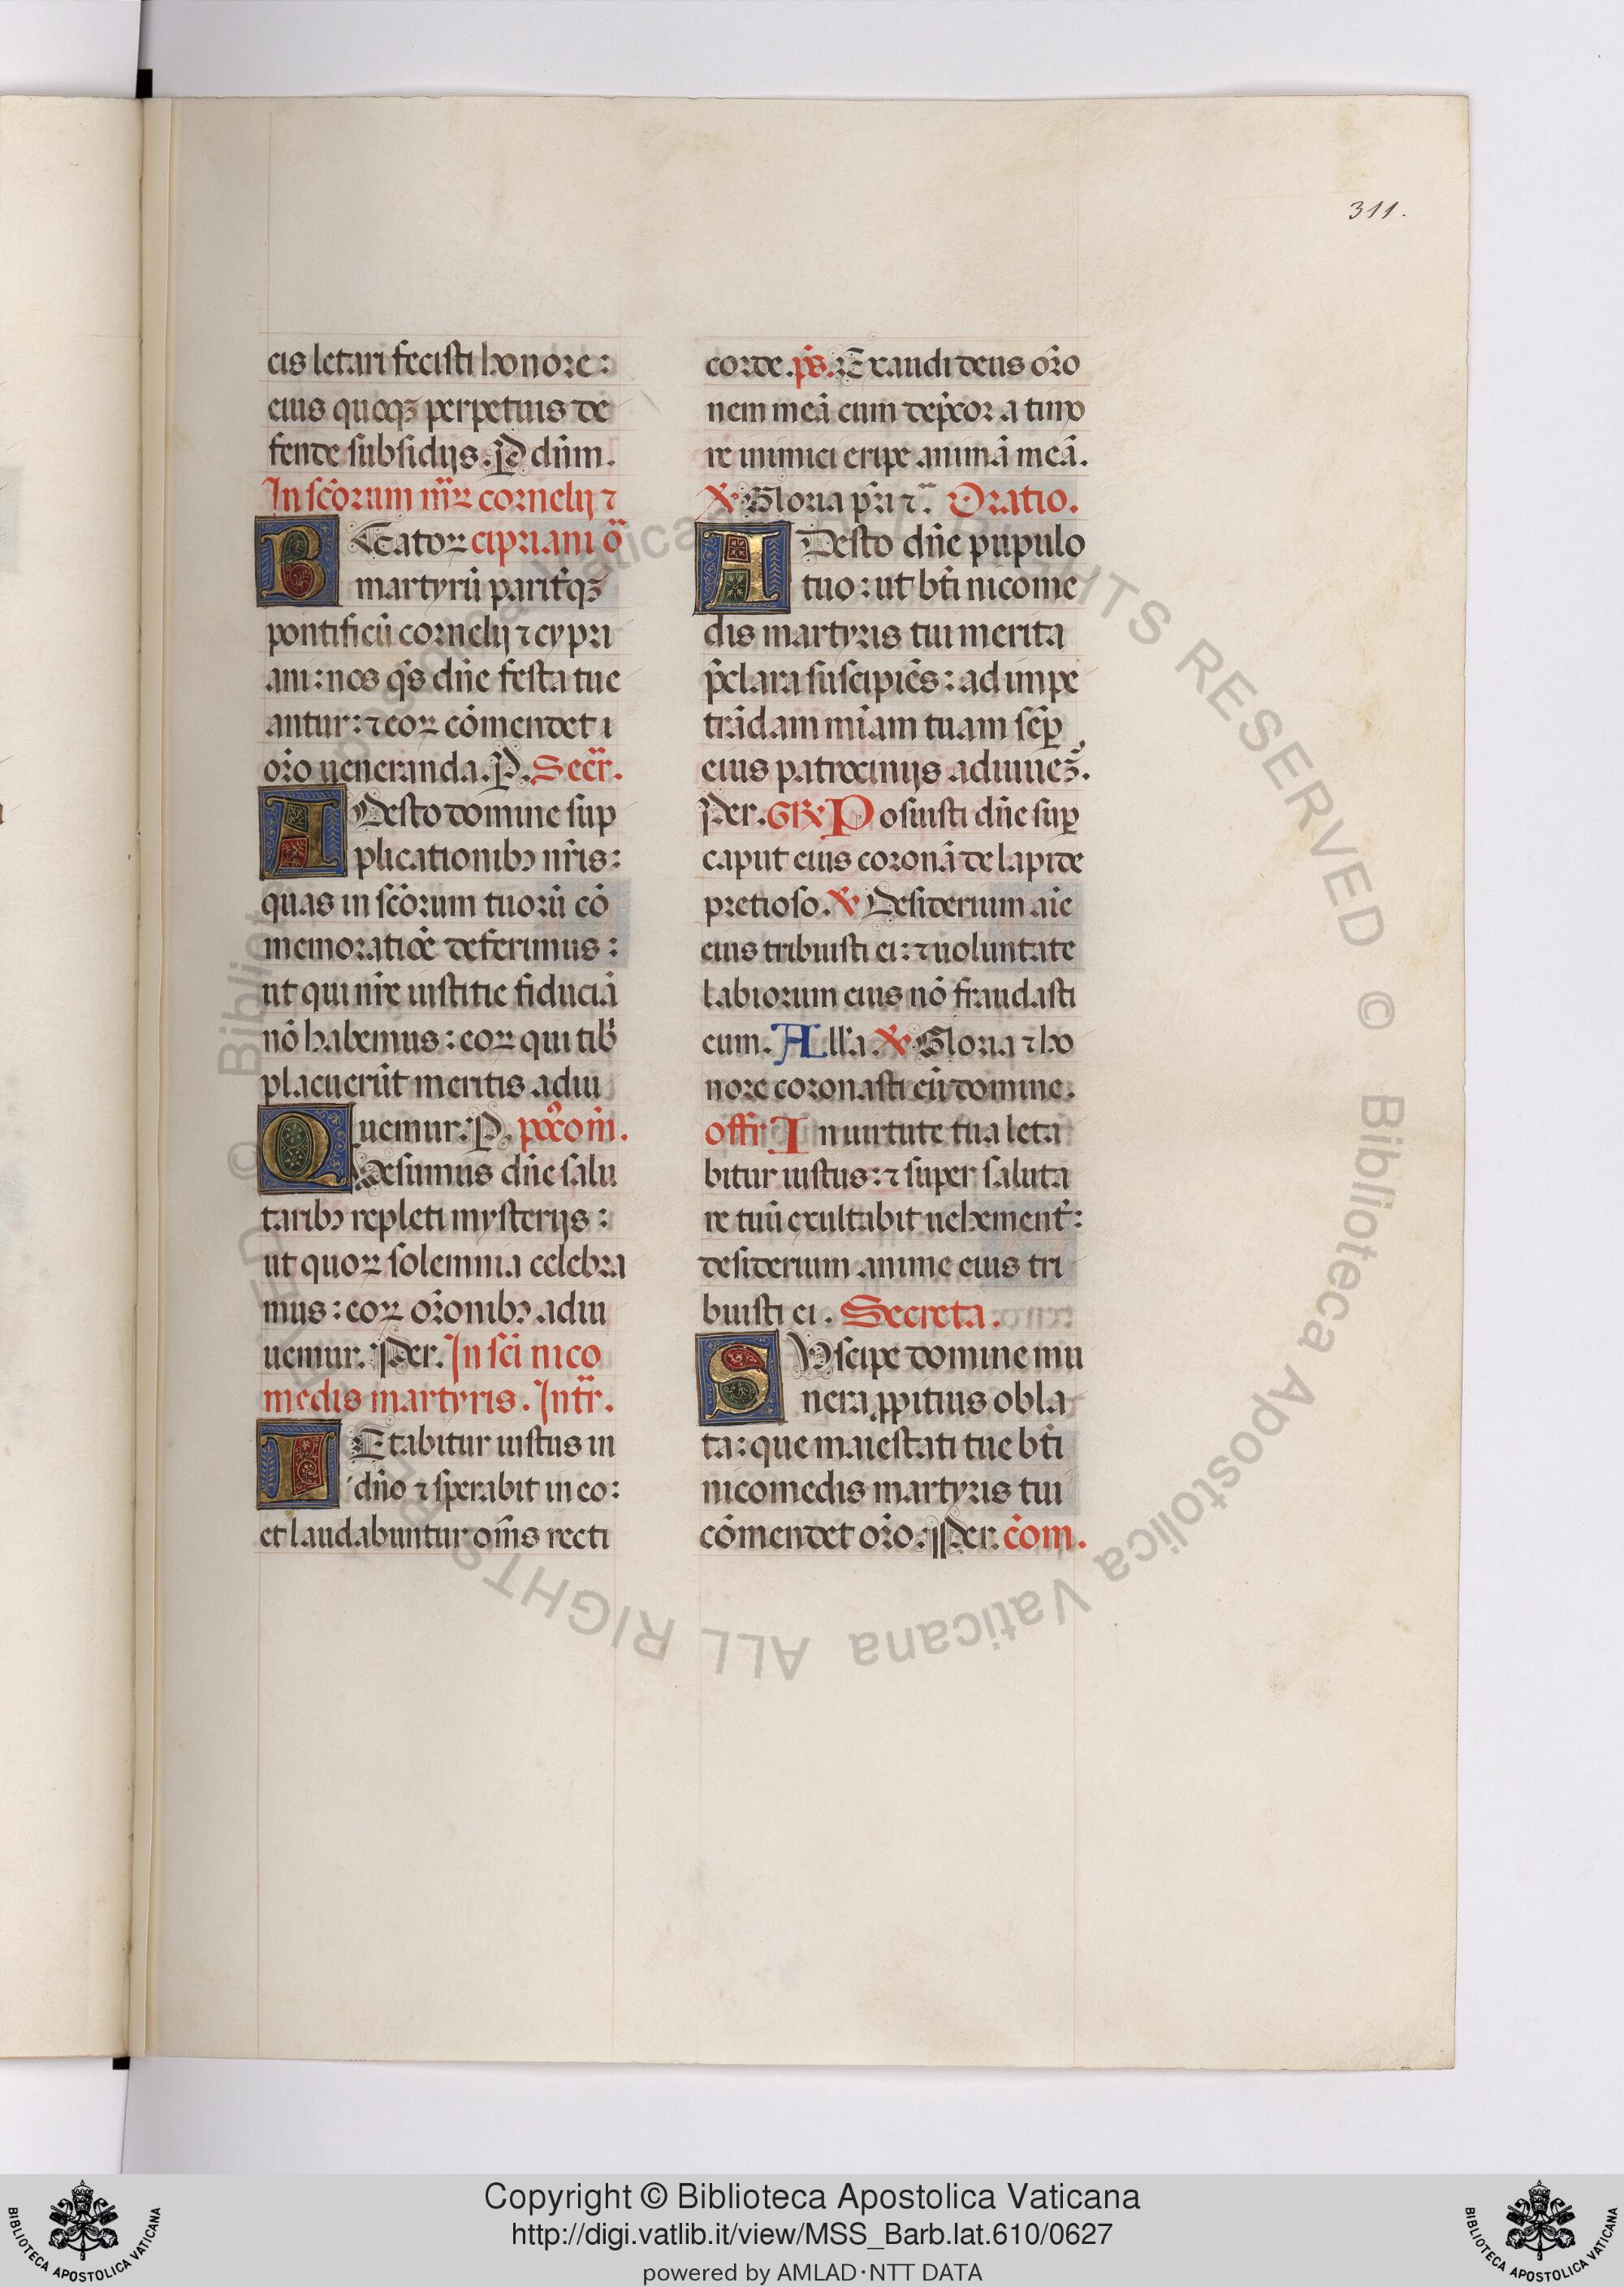 311.
cis letari fecisti honore:
eius quoqꝫ perpetuis de
fende subsidijs. P dn̄m.
In sc̄orum mr̄ꝝ cornelij ⁊
BEatoꝝ cipriani o͞
martyrū parit̄qꝫ
pontificū cornelij ⁊ cypri
ani: nos q̄s dn̄e festa tue
antur: ⁊ eoꝝ cōmendet i
or̄o ueneranda. P. Secr̄.
ADesto domine sup
plicationibꝰ nr̄is:
quas in sc̄orum tuorū cō
memoratiōe deferimus:
ut qui nr̄e iustitie fiduciā
nō habemus: eoꝝ qui tib̄
placuerūt meritis adiu
uemur. P. pꝰcōm̄.
QUesumus dn̄e salu
taribꝰ repleti mysterijs:
ut quoꝝ solemnia celebra
mus: eoꝝ or̄onibꝰ adiu
uemur. Per. In sc̄i nico
medis martyris. Intr̄.
LEtabitur iustus in
dn̄o ⁊ sperabit in eo:
et laudabuntur om̄s recti
corde. p̄s. Exaudi deus or̄o
nem meā cum dep̄cor a timo
re inimici eripe animā meā.
℣ Gloria pr̄i ⁊c̄. Oratio.
ADesto dn̄e pupulo
tuo: ut bt̄i nicome
dis martyris tui merita
p̄clara suscipiēs: ad impe
trādam mīam tuam sēꝑ
eius patrocinijs adiuues̄.
Per. GR℣ Posuisti dn̄e suꝑ
caput eius coronā de lapide
pretioso. ℣ Desiderium aīe
eius tribuisti ei: ⁊ uoluntate
labiorum eius nō fraudasti
eum. All'a. ℣ Gloria ⁊ ho
nore coronasti eū domine.
offr̄ In uirtute tua leta
bitur iustus: ⁊ super saluta
re tuū exultabit uehement̄:
desiderium anime eius tri
buisti ei. Secreta.
SUscipe domine mu
nera ꝓpitius obla
ta: que maiestati tue bt̄i
nicomedis martyris tui
cōmendet or̄o. Per. cōm.
© Biblioteca Apostolica Vaticana ALL RIGHTS RESERVED
Copyright © Biblioteca Apostolica Vaticana
http://digi.vatlib.it/view/MSS_Barb.lat.610/0627
powered by AMLAD·NTT DATA
BIBLIOTECA APOSTOLICA VATICANA
BIBLIOTECA APOSTOLICA VATICANA